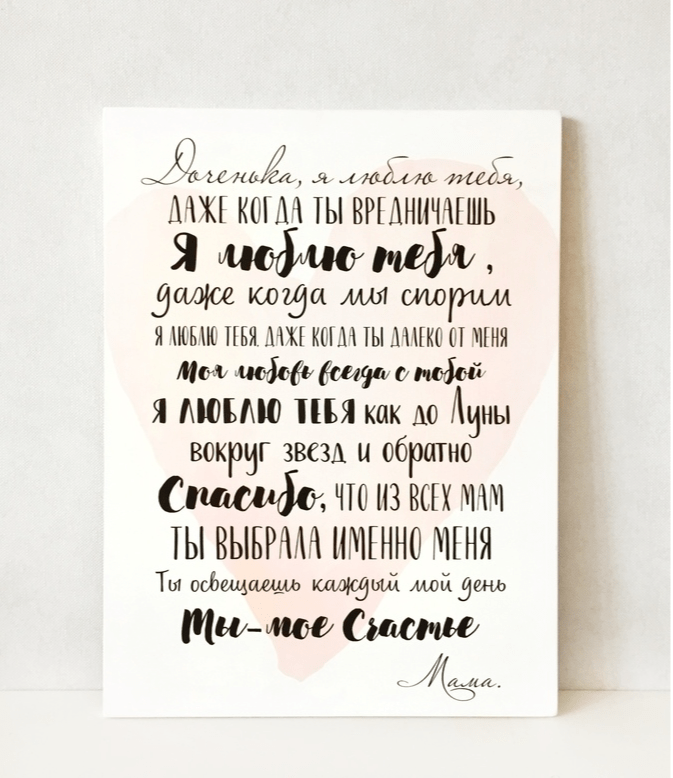 Доченька, я люблю тебя,
ДАЖЕ КОГДА ТЫ ВРЕДНИЧАЕШЬ
Я люблю тебя,
даже когда мы спорим
Я ЛЮБЛЮ ТЕБЯ. ДАЖЕ КОГДА ТЫ ДАЛЕКО ОТ МЕНЯ
Моя любовь всегда с тобой
Я ЛЮБЛЮ ТЕБЯ как до Луны
вокруг звезд и обратно
Спасибо, ЧТО ИЗ ВСЕХ МАМ
ТЫ ВЫБРАЛА ИМЕННО МЕНЯ
Ты освещаешь каждый мой день
Ты-мое Счастье
Мама.